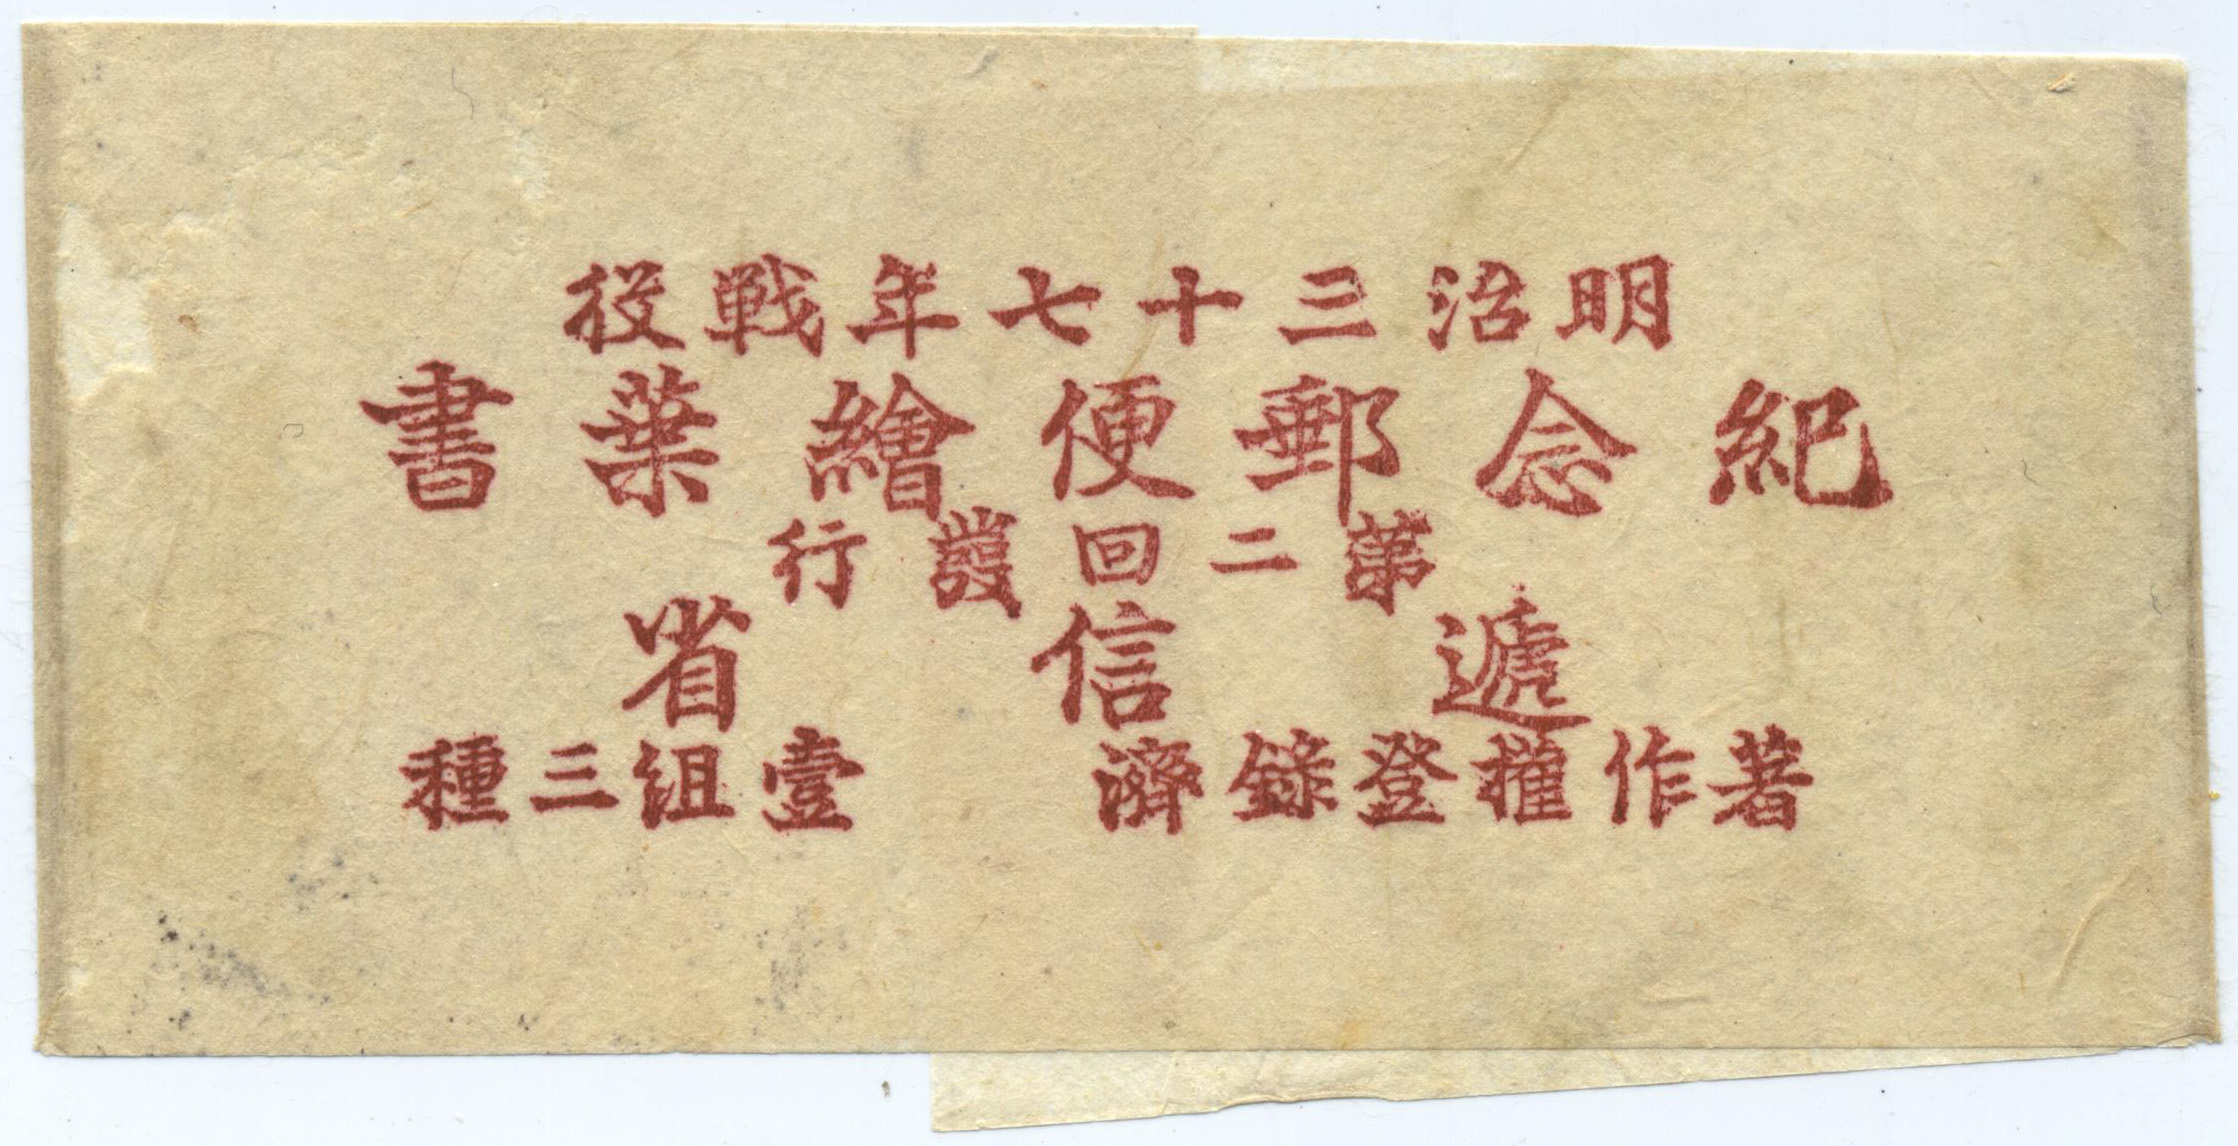 明治三十七年戦役
紀念郵便繪葉書
第二回發行
遞信省
著作權登錄濟 壹組三種